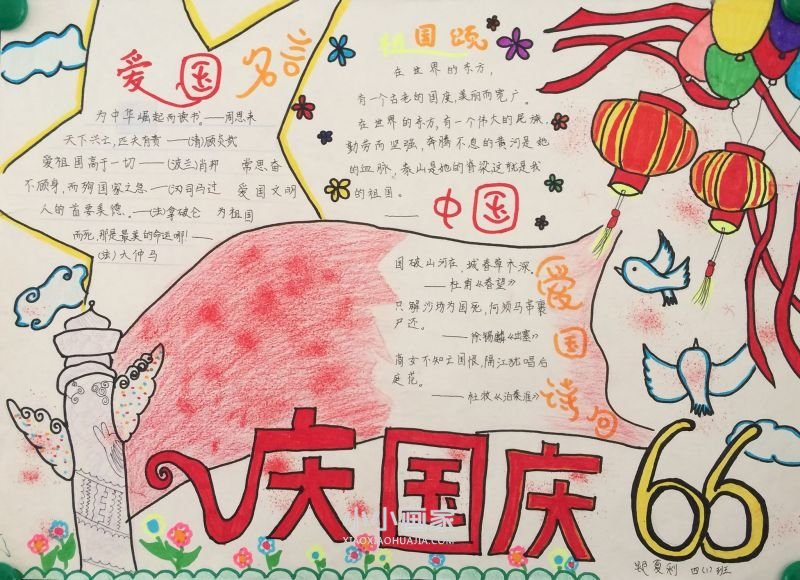 爱国名言
为中华崛起而读书。——周恩来
天下兴亡，匹夫有责——(清)顾炎武
爱祖国高于一切——(波兰)肖邦 常思奋
不顾身，而殉国家之急。——(汉)司马迁 爱国文明
人的首要美德。——(法)拿破仑 为祖国
而死，那是最美的命运啊！——
(法)大仲马
祖国颂
在世界的东方，
有一个古老的国度，美丽而宽广。
在世界的东方，有一个伟大的民族，
勤劳而坚强，奔腾不息的黄河是她
的血脉，泰山是她的脊梁这就是我
的祖国。
——中国
爱国诗词
国破山河在，城春草木深。
——杜甫《春望》
只解沙场为国死，何须马革裹
尸还。
——徐锡麟《出塞》
商女不知亡国恨，隔江犹唱后
庭花。
——杜牧《泊秦淮》
庆国庆
66
小小画家
XIAOXIAOHUAJIA.COM
夏利 四(1)班